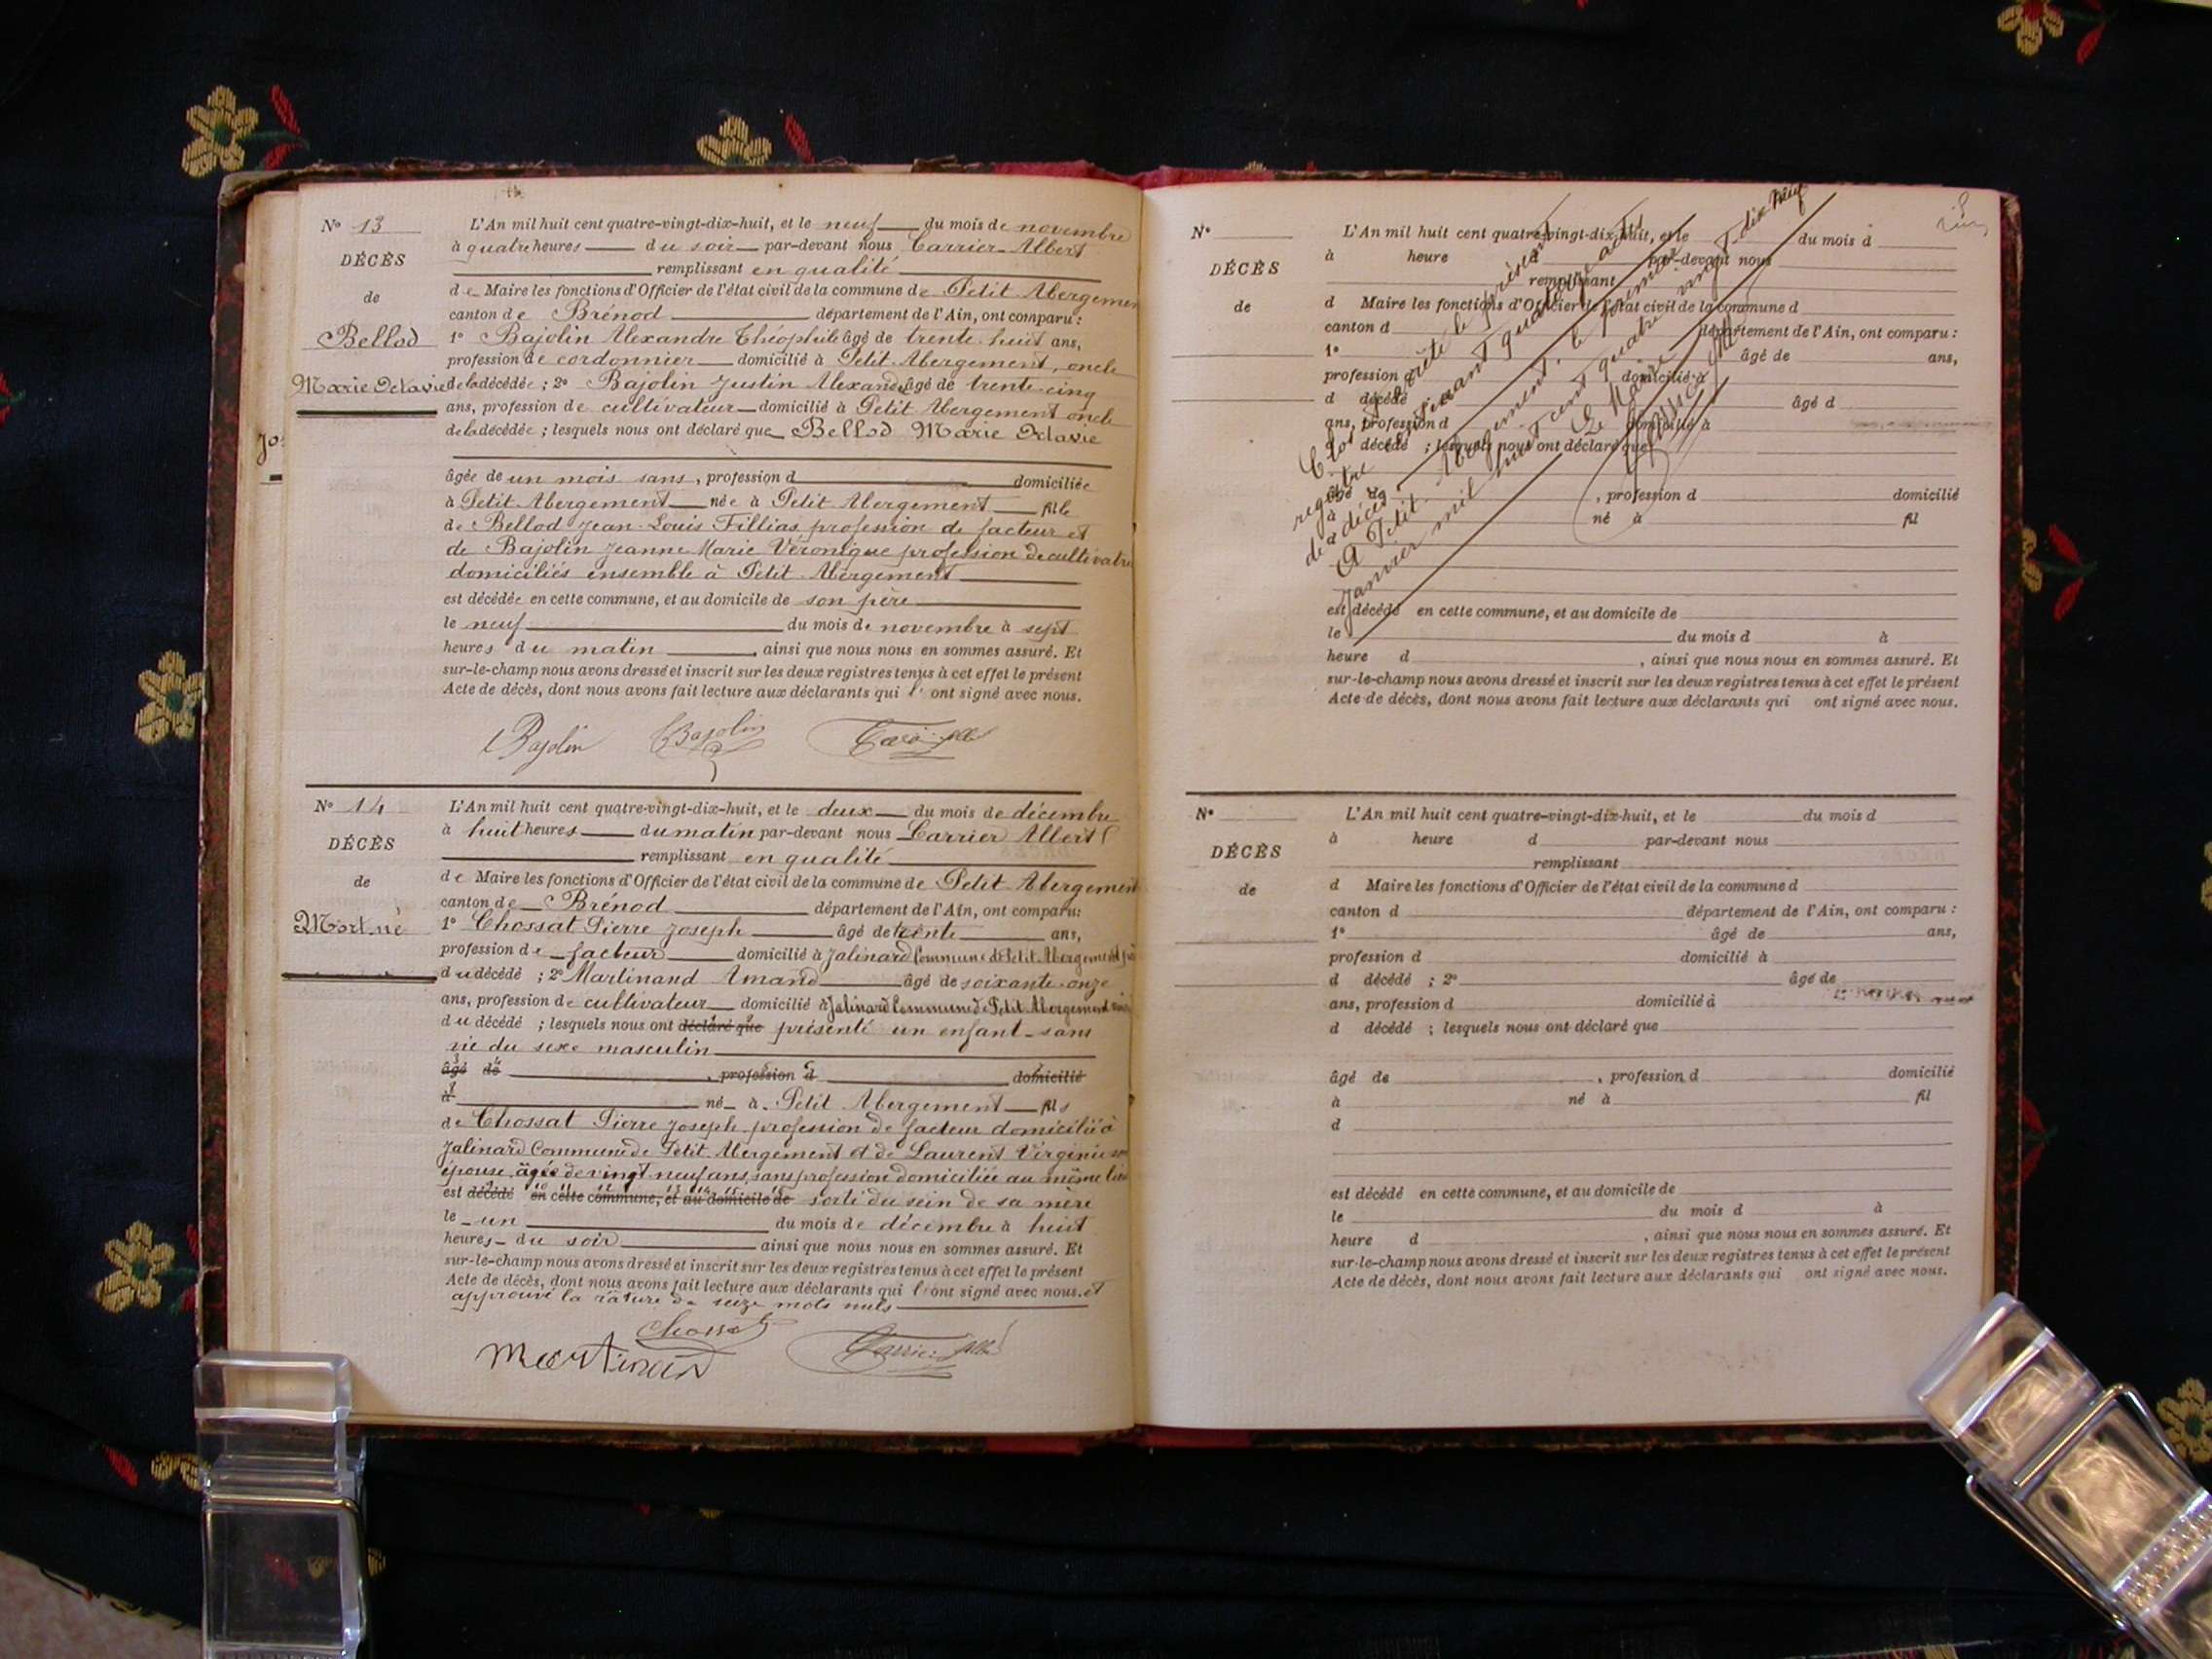 Nº 13
DÉCÈS
de
Bellod
Marie Octavie
L'An mil huit cent quatre-vingt-dix-huit, et le neuf du mois de novembre
à quatre heures du soir par-devant nous Carrier Albert
remplissant en qualité
de Maire les fonctions d'Officier de l'état civil de la commune de Petit Abergement
canton de Brénod département de l'Ain, ont comparu :
1º Bajolin Alexandre Théophile âgé de trente huit ans,
profession de cordonnier domicilié à Petit Abergement, oncle
de la décédée ; 2º Bajolin Justin Alexandre âgé de trente cinq
ans, profession de cultivateur domicilié à Petit Abergement oncle
de la décédée ; lesquels nous ont déclaré que Bellod Marie Octavie
âgée de un mois sans, profession d domiciliée
à Petit Abergement née à Petit Abergement fille
de Bellod Jean-Louis Fillias, profession de facteur et
de Bajolin Jeanne Marie Véronique profession de cultivatrice
domiciliés ensemble à Petit Abergement
est décédée en cette commune, et au domicile de son père
le neuf du mois de novembre à sept
heures du matin, ainsi que nous nous en sommes assuré. Et
sur-le-champ nous avons dressé et inscrit sur les deux registres tenus à cet effet le présent
Acte de décès, dont nous avons fait lecture aux déclarants qui l' ont signé avec nous.
Bajolin Bajolin
Nº 14
DÉCÈS
de
Mort-né
L'An mil huit cent quatre-vingt-dix-huit, et le deux du mois de décembre
à huit heures du matin par-devant nous Carrier Albert
remplissant en qualité
de Maire les fonctions d'Officier de l'état civil de la commune de Petit Abergement
canton de Brénod département de l'Ain, ont comparu:
1º Chossat Pierre Joseph âgé de trente ans,
profession de facteur domicilié à Jalinard Commune de Petit Abergement
du décédé ; 2º Martinand Amand âgé de soixante-onze
ans, profession de cultivateur domicilié à Jalinard Commune de Petit Abergement
du décédé ; lesquels nous ont déclaré que présenté un enfant sans
vie du sexe masculin
âgé de, profession d domicilié
à né à Petit Abergement fils
de Chossat Pierre Joseph profession de facteur domicilié à
Jalinard Commune de Petit Abergement et de Laurent Virginie son
épouse, âgée de vingt neuf ans, sans profession domiciliée au même lieu
est décédé en cette commune, et au domicile de sorti du sein de sa mère
le un du mois de décembre à huit
heures du soir ainsi que nous nous en sommes assuré. Et
sur-le-champ nous avons dressé et inscrit sur les deux registres tenus à cet effet le présent
Acte de décès, dont nous avons fait lecture aux déclarants qui l'ont signé avec nous. et
approuvé la rature de seize mots nuls
Chossat
Martinand
Nº
DÉCÈS
de
L'An mil huit cent quatre-vingt-dix-huit, et le du mois d
à heure d par-devant nous
remplissant
d Maire les fonctions d'Officier de l'état civil de la commune d
canton d département de l'Ain, ont comparu :
1º âgé de ans,
profession d domicilié à
d décédé âgé d
ans, profession d domicilié à
d décédé ; lesquels nous ont déclaré que
âgé de, profession d domicilié
à né à fil
est décédé en cette commune, et au domicile de
le du mois d à
heure d, ainsi que nous nous en sommes assuré. Et
sur-le-champ nous avons dressé et inscrit sur les deux registres tenus à cet effet le présent
Acte de décès, dont nous avons fait lecture aux déclarants qui ont signé avec nous.
Clos et arrêté le présent
registre contenant quatorze actes
de décès.
A Petit Abergement, le premier
Janvier mil huit cent quatre vingt-dix-neuf
Le Maire
Nº
DÉCÈS
de
L'An mil huit cent quatre-vingt-dix-huit, et le du mois d
à heure d par-devant nous
remplissant
d Maire les fonctions d'Officier de l'état civil de la commune d
canton d département de l'Ain, ont comparu :
1º âgé de ans,
profession d domicilié à
d décédé ; 2º âgé de
ans, profession d domicilié à
d décédé ; lesquels nous ont déclaré que
âgé de, profession d domicilié
à né à fil
d
est décédé en cette commune, et au domicile de
le du mois d à
heure d, ainsi que nous nous en sommes assuré. Et
sur-le-champ nous avons dressé et inscrit sur les deux registres tenus à cet effet le présent
Acte de décès, dont nous avons fait lecture aux déclarants qui ont signé avec nous.